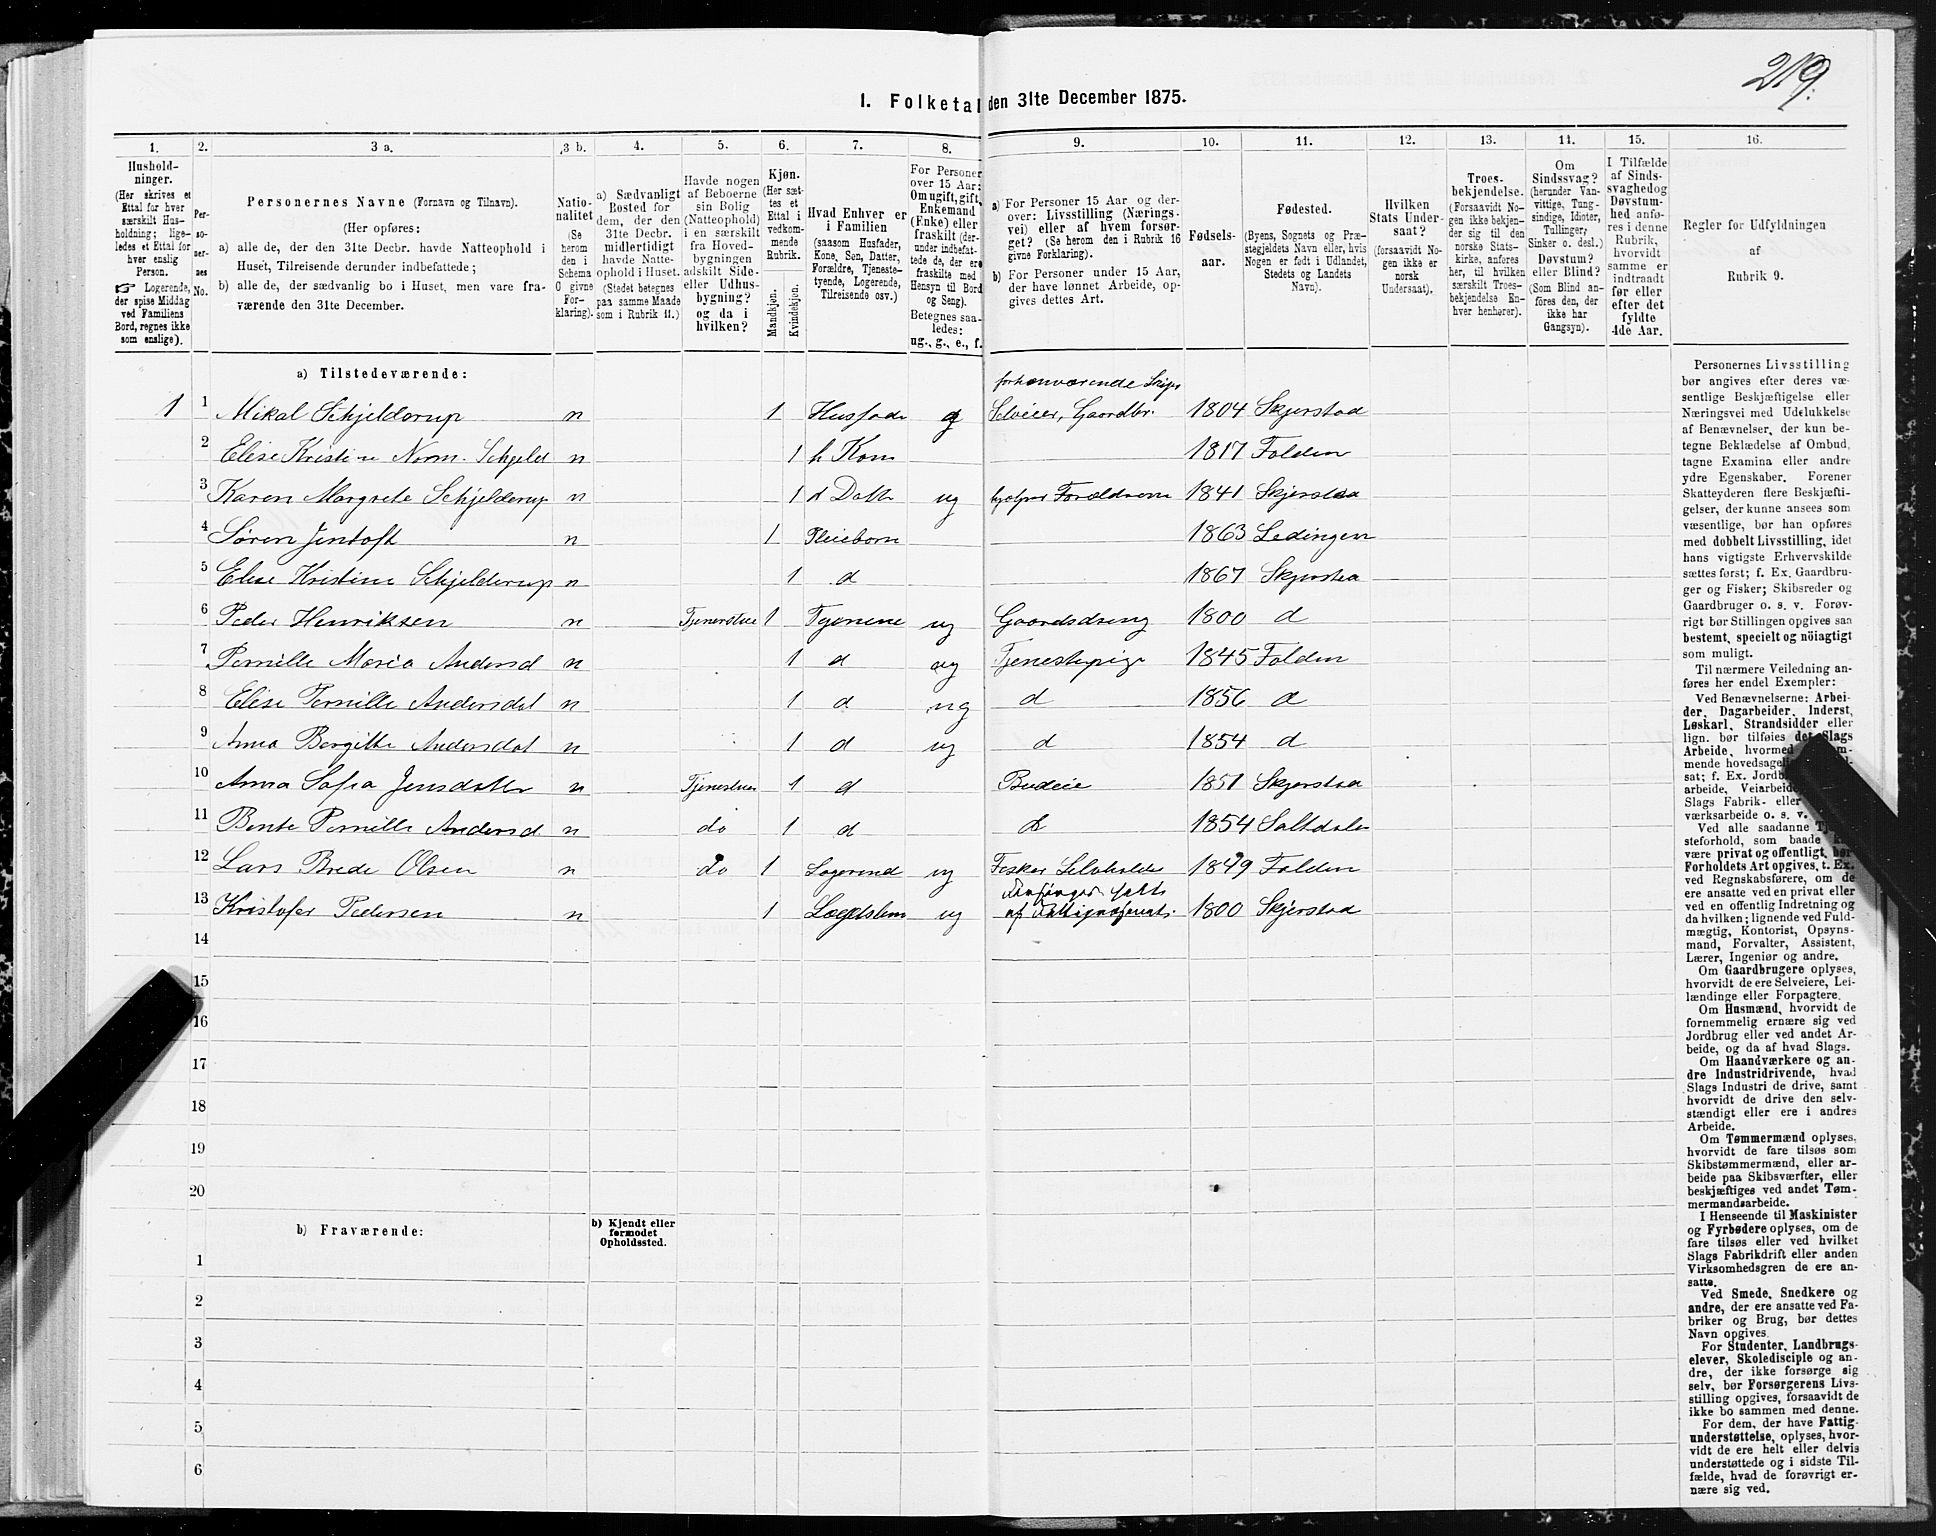 219.
I. Folketal den 31te December 1875.
1. 2. 3 a. 3 b. 4. 5. 6. 7. 8. 9. 10. 11. 12. 13. 14. 15. 16.
Hushold-
ninger.
(Her skrives et
Ettal for hver
særskilt Hus-
holdning; lige-
ledes et Ettal for
hver enslig
Person.
☞ Logerende,
der spise Middag
ved Familiens
Bord, regnes ikke
som enslige).
Per-
so-
ner-
nes
No.
Personernes Navne (Fornavn og Tilnavn).
(Her opføres:
a) alle de, der den 31te Decbr. havde Natteophold i
Huset, Tilreisende derunder indbefattede;
b) alle de, der sædvanlig bo i Huset, men vare fra-
værende den 31te December.
Natio-
nalitet
(Se
herom
den i
Schema
O givne
For-
klaring).
a) Sædvanligt
Bosted for
dem, der den
31te Decbr.
midlertidigt
havde Natte-
ophold i Huset.
(Stedet betegnes
paa samme Maade
som i Rubrik 11.)
Havde nogen
af Beboerne
sin Bolig
(Natteophold)
i en særskilt
fra Hoved-
bygningen
adskilt Side-
eller Udhus-
bygning?
og da i
hvilken?
Kjøn.
(Her sæt-
tes et
Ettal i
vedkom-
mende
Rubrik.
Mandkjøn.
Kvindekjøn.
Hvad Enhver er
i Familien
(saasom Husfader,
Kone, Søn, Datter,
Forældre, Tjeneste-
tyende, Logerende,
Tilreisende osv.)
For Personer
over 15 Aar:
Om ugift, gift,
Enkemand
(Enke) eller
fraskilt (der-
under indbefat-
tede de, der ere
fraskilte med
Hensyn til Bord
og Seng).
Betegnes saa-
ledes:
ug., g., e., f.
a) For Personer 15 Aar og der-
over: Livsstilling (Nærings-
vei) eller af hvem forsør-
get? (Se herom den i Rubrik 16
givne Forklaring).
b) For Personer under 15 Aar,
der have lønnet Arbeide, op-
gives dettes Art.
Fødsels-
aar.
Fødested.
(Byens, Sognets og Præ-
stegjeldets Navn eller, hvis
Nogen er født i Udlandet,
Stedets og Landets
Navn).
Hvilken
Stats Under-
saat?
(forsaavidt No-
gen ikke er
norsk
Undersaat).
Troes-
bekjendelse.
(Forsaavidt No-
gen ikke bekjen-
der sig til den
norske Stats-
kirke, anføres
her, til hvilken
særskilt Troes-
bekjendelse En-
hver henhører).
Om
Sindssvag?
(herunder Van-
vittige, Tung-
sindige, Idioter,
Tullinger,
Sinker o. desl.)
Døvstum?
eller Blind?
(Som Blind an-
føres den, der
ikke har
Gangsyn).
I Tilfælde
af Sinds-
svaghedog
Døvstum-
hed anfø-
res i denne
Rubrik,
hvorvidt
samme er
indtraadt
før eller
efter det
fyldte
4de Aar.
Regler for Udfyldningen
af
Rubrik 9.
a) Tilstedeværende:
forhenværende
1 1 Mikal Schjelderup n 1 g Selveier, Gaardbr. 1804 Skjerstad
2 Elise Kristine Norm. Schjeld n 1 h Kone 1817 Folden
3 Karen Margrete Schjelderup n 1 d Datt ug hjelper Forældrene 1841 Skjerstaa
4 Søren Jentoft n 1 Pleiebørn 1863 Ledingen
5 Elise Kristine Schjelderup n 1 d 1867 Skjerstaa
6 Peder Henriksen n Tjenerstue 1 Tjenene ug Gaardsdreng 1800 d
7 Pernille Maria Andersd n 1 d ug Tjenestepige 1845 Folden
8 Elise Pernille Andersdat n 1 d ug d 1856 d
9 Anna Bergitte Andersdat n 1 d ug d 1854 d
10 Anna Sofia Jensdatter n 1 d Budeie 1851 Skjerstaa
11 Bente Pernille Andersd n do 1 d d 1854 Saltdalen
12 Lars Brede Olsen n do 1 Logerend ug Fisker 1849 Folden
13 Kristofer Pedersen n 1 Lægdslem ug af 1800 Skjerstad
14
15
16
17
18
19
20
b) Fraværende:
b) Kjendt eller
formodet
Opholdssted.
1
2
3
4
5
6
Personernes Livsstilling
bør angives efter deres væ-
sentlige Beskjæftigelse eller
Næringsvei med Udelukkelse
af Benævnelser, der kun be-
tegne Beklædelse af Ombud,
tagne Examina eller andre
ydre Egenskaber. Forener
Skatteyderen flere Beskjæfti-
gelser, der kunne ansees som
væsentlige, bør han opføres
med dobbelt Livsstilling, idet
hans vigtigste Erhvervskilde
sættes først; f. Ex. Gaardbru-
ger og Fisker; Skibsreder og
Gaardbruger o. s. v. Forøv-
rigt bør Stillingen opgives saa
bestemt, specielt og nøiagtigt
som muligt.
Til nærmere Veiledning an-
føres her endel Exempler:
Ved Benævnelserne: Arbei-
der, Dagarbeider, Inderst,
Løskarl, Strandsidder eller
lign. bør tilføies det Slags
Arbeide, hvormed
mende hovedsagel
sat; f. Ex. Jordb
arbeide, Veiarbeide
Slags Fabrik- eller
værksarbeide o. s. v.
Ved alle saadanne
steforhold, som baade
være privat og offentligt, bør
Forholdets Art opgives, t. Ex.
ved Regnskabsførere, om de
ere ansatte ved en privat eller
ved en offentlig Indretning og
da hvilken; lignende ved Fuld-
mægtig, Kontorist, Opsyns-
mand, Forvalter, Assistent,
Lærer, Ingeniør og andre.
Om Gaardbrugere oplyses,
hvorvidt de ere Selveiere, Lei-
lændinge eller Forpagtere.
Om Husmænd, hvorvidt de
fornemmelig ernære sig ved
Jordbrug eller ved andet Ar-
beide, og da af hvad Slags.
Om Haandværkere og an-
dre Industridrivende, hvad
Slags Industri de drive, samt
hvorvidt de drive den selv-
stændigt eller ere i andres
Arbeide.
Om Tømmermænd oplyses,
hvorvidt de fare tilsøs som
Skibstømmermænd, eller ar-
beide paa Skibsværfter, eller
beskjæftiges ved andet Tøm-
mermandsarbeide.
I Henseende til Maskinister
og Fyrbødere oplyses, om de
fare tilsøs eller ved hvilket
Slags Fabrikdrift eller anden
Virksomhedsgren de ere an-
satte.
Ved Smede, Snedkere og
andre, der ere ansatte ved Fa-
briker og Brug, bør dettes
Navn opgives.
For Studenter, Landbrugs-
elever, Skoledisciple og an-
dre, der ikke forsørge sig
selv, bør Forsørgerens Livs-
stilling opgives, forsaavidt de
ikke bo sammen med denne.
For dem, der have Fattig-
understøttelse, oplyses, hvor-
vidt de ere helt eller delvis
understøttede og i sidste Til-
fælde, hvad de forøvrigt er-
nære sig ved.